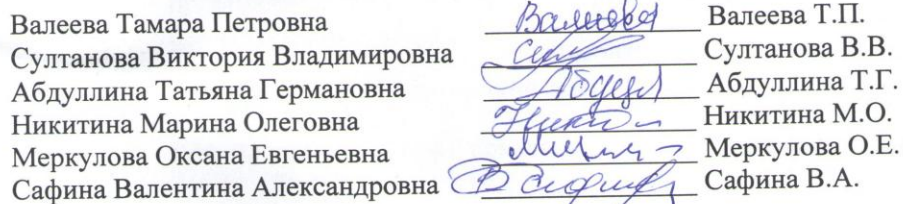 Валеева Тамара Петровна Валеева Валеева Т.П.
Султанова Виктория Владимировна Султанова В.В.
Абдуллина Татьяна Германовна Абдул Абдуллина Т.Г.
Никитина Марина Олеговна Никитина М.О.
Меркулова Оксана Евгеньевна Меркулова О.Е.
Сафина Валентина Александровна Сафина В.А.